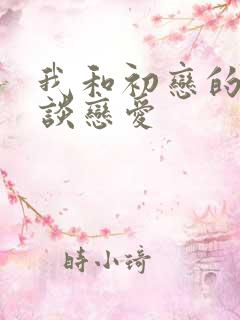 我和初戀的
談戀愛
時小琦